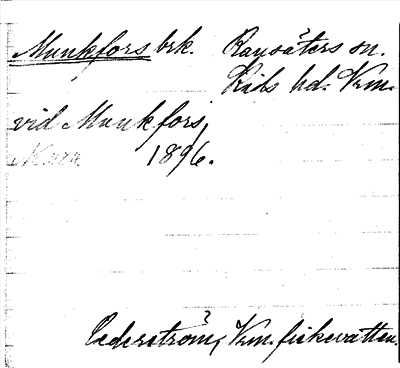 Munkfors brk. Ransäters sn.
Kils hd. Vrm.
vid Munkfors,
1896.
Cederström, Vrm. fiskevatten